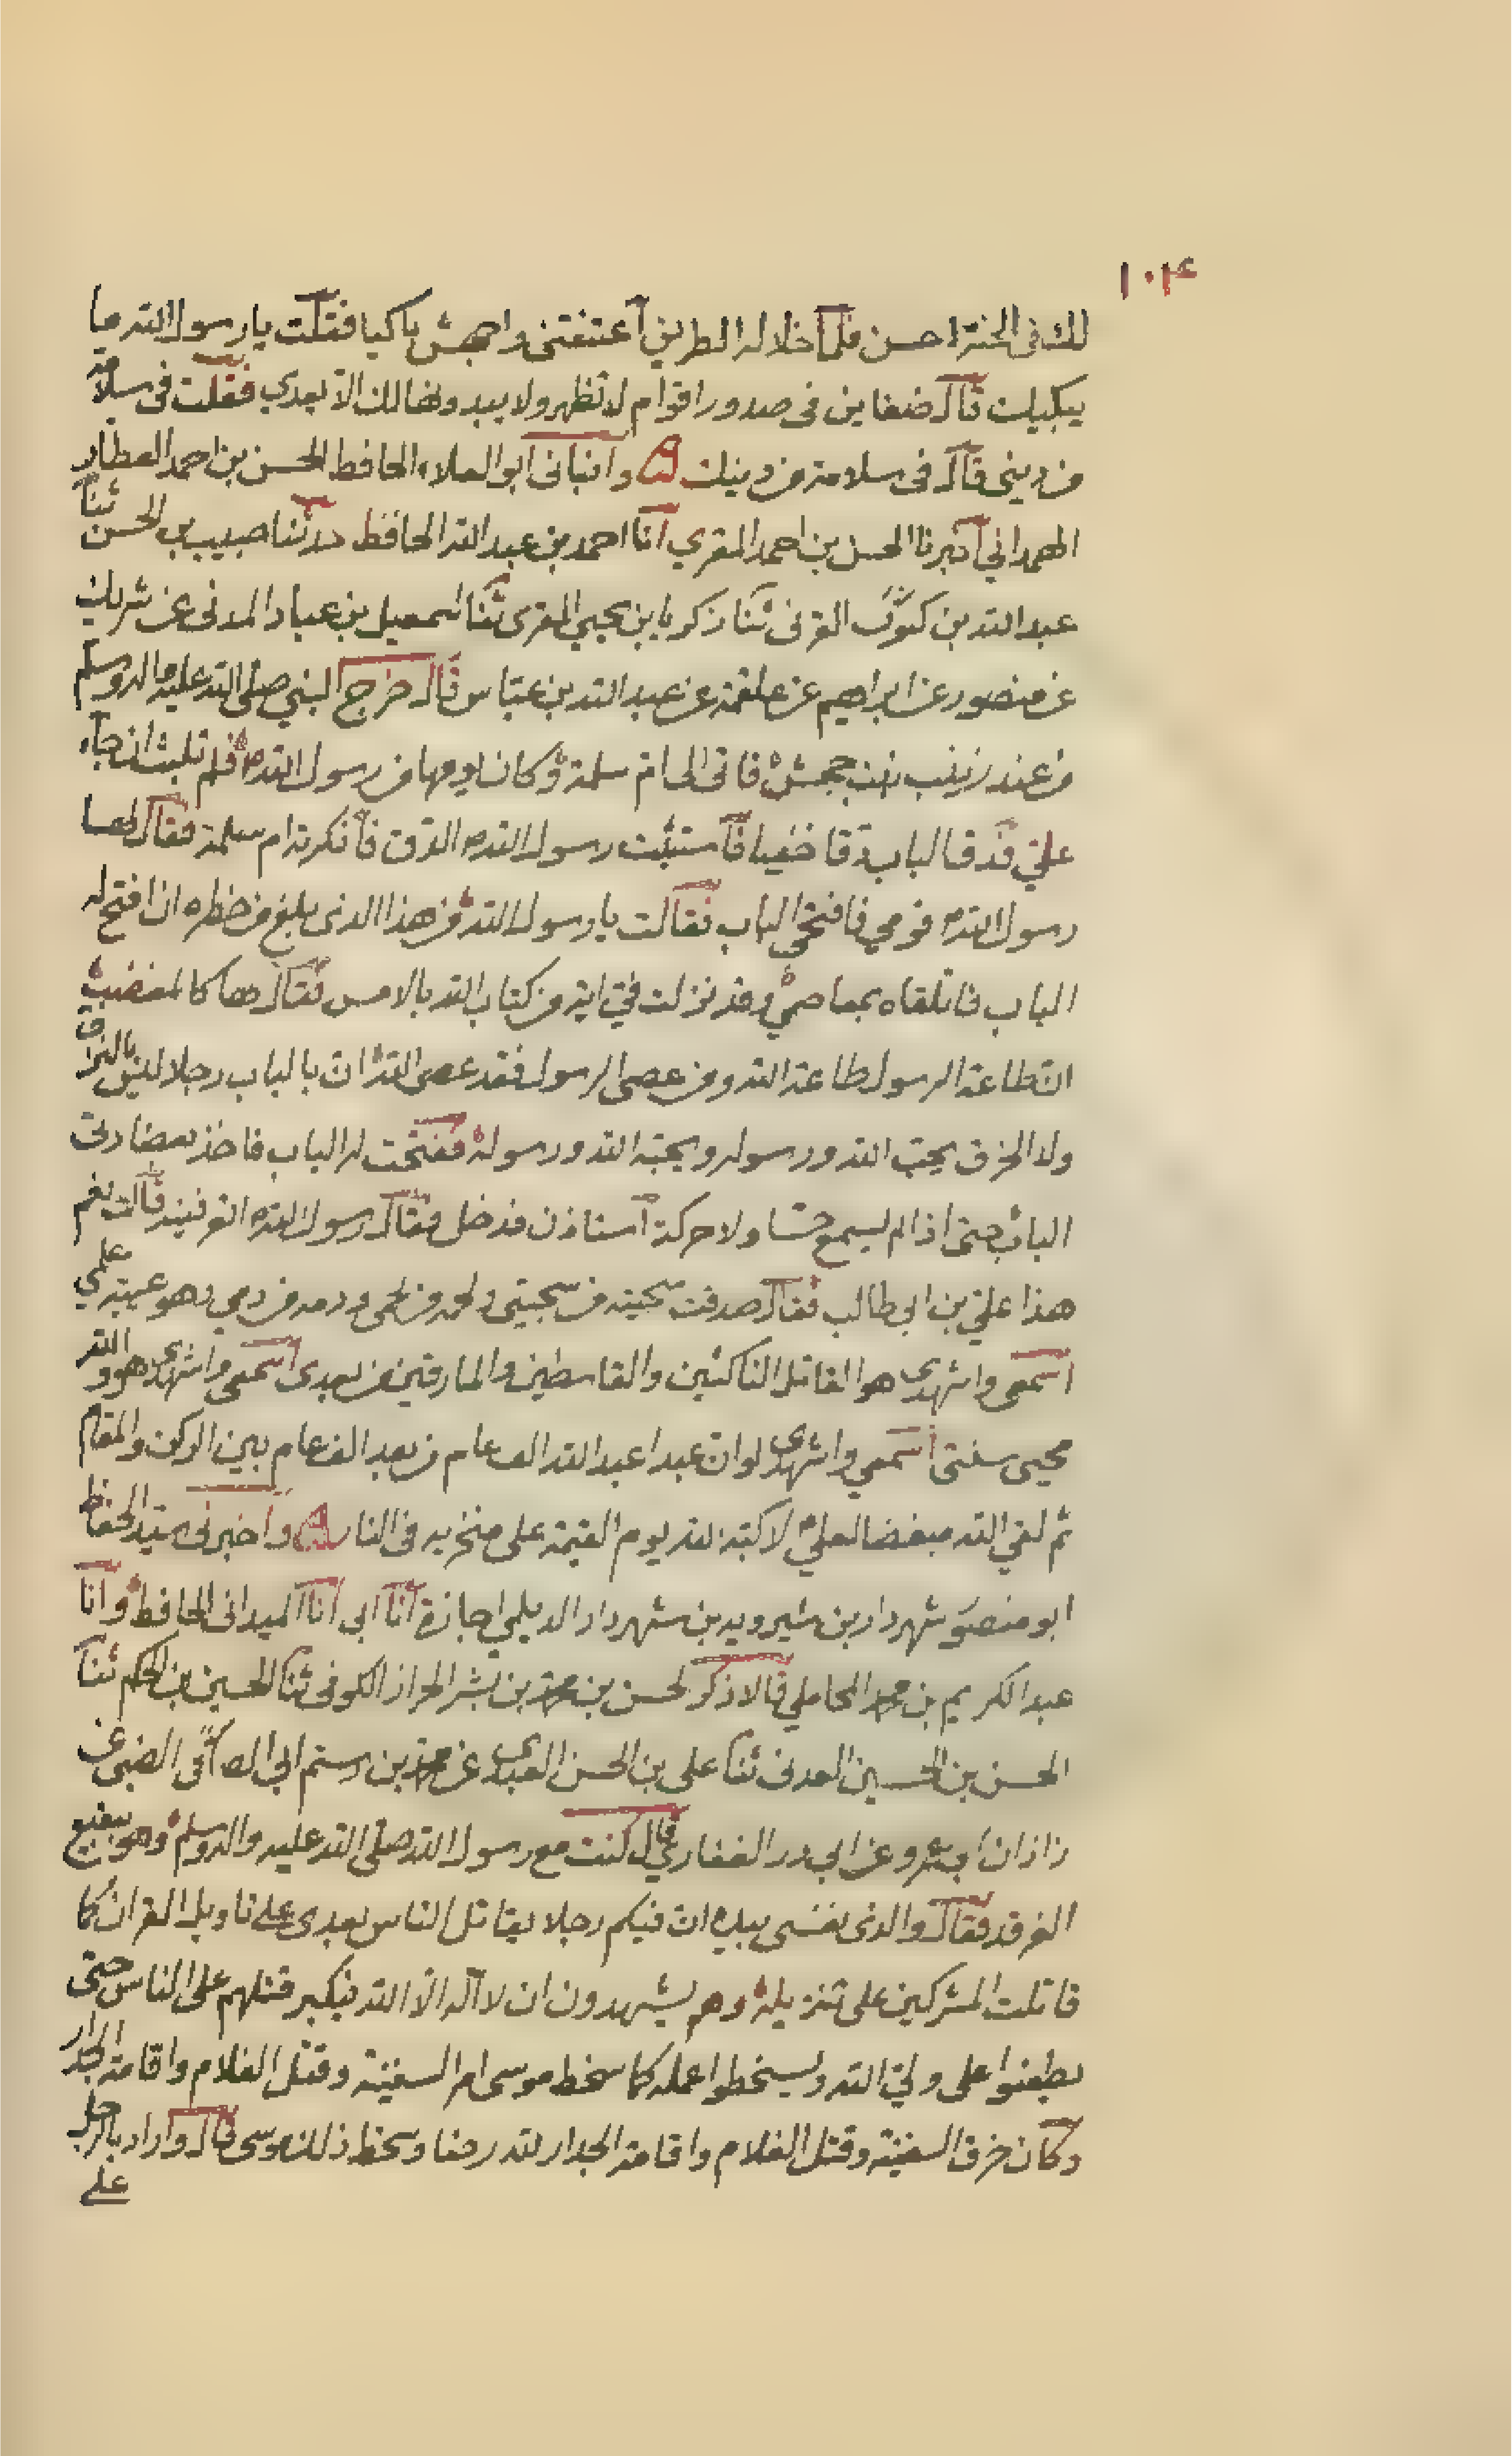 ١٠٤
لك في الجنة احسن فلما خلا له الطريق اعتنقني واجهش باكيا فقلت يا رسول الله ما
يبكيك قال ضغاين في صدور اقوام لا تظهر ولا يبدونها لك الا بعدي فقلت في سلامة
من ديني قال في سلامة من دينك وانباني ابو العلاء الحافظ الحسن بن احمد العطار
الهمداني اخبرنا الحسن بن احمد المقري انا احمد بن عبد الله الحافظ حدثنا حبيب بن الحسن ثنا
عبد الله بن القرني ثنا زكريا بن يحيي المقري ثنا اسمعيل بن عباد المدني عن شريك
عن منصور عن ابراهيم عن علقمة عن عبد الله بن عباس قال خرج النبي صلى الله عليه واله وسلم
من عند زينب بنت جحش فاتى الى ام سلمة وكان يومها من رسول الله فلم تلبث ان جاء
علي فدق الباب دقا خفيا فاستثبت رسول الله الدق فانكرته ام سلمة فقال لها
رسول الله قومي فافتحي الباب فقالت يا رسول الله من هذا الذي بلغ من خطره ان افتح له
الباب فاتلقاه بمعاصمي وقد نزلت في اية من كتاب الله بالامس فقال لها كالمغضب
ان طاعة الرسول طاعة الله ومن عصى الرسول فقد عصى الله ان بالباب رجلا ليس بالنزق
ولا الخرق يحب الله ورسوله ويحبه الله ورسوله ففتحت له الباب فاخذ بعضادتي
الباب حتى اذا لم يسمع حسا ولا حركة استاذن فدخل فقال رسول الله اتعرفينه قالت نعم
هذا علي بن ابي طالب فقال صدقت سجيته من سجيتي ولحمه من لحمي ودمه من دمي وهو عيبة علمي
اسمعي واشهدي هو القاتل الناكثين والقاسطين والمارقين من بعدي اسمعي واشهدي هو والله
محيي سنتي اسمعي واشهدي لو ان عبدا عبد الله الف عام من بعد الف عام بين الركن والمقام
ثم لقي الله مبغضا لعلي لاكبه الله يوم القيمة على منخريه في النار واخبرني سيد الحفاظ
ابو منصور شهردار بن شيرويه بن شهردار الديلمي اجازة انا ابي انا الميداني الحافظ وانا
عبد الكريم بن محمد المحاملي قالا ذكر لحسن بن محمد بن بشر الحراز الكوفي ثنا الحسين بن الحكم ثنا
الحسن بن الحسين العدني ثنا علي بن الحسن العبدي عن محمد بن رستم ابي الضبي عن
زاذان ابي عمرو عن ابي ذر الغفاري قال كنت مع رسول الله صلى الله عليه واله وسلم وهو ببقيع
الغرقد فقال والذي نفسي بيده ان فيكم رجلا يقاتل الناس بعدي على تاويل القران كما
قاتلت المشركين على تنزيله وهم يشهدون ان لا اله الا الله فيكبر قتلهم على الناس حتى
يطعنوا على ولي الله ويسخطوا عمله كما سخط موسى امر السفينة وقتل الغلام واقامة الجدار
وكان خرق السفينة وقتل الغلام واقامة الجدار لله رضا وسخط ذلك موسى قال واراد بالرجل
على